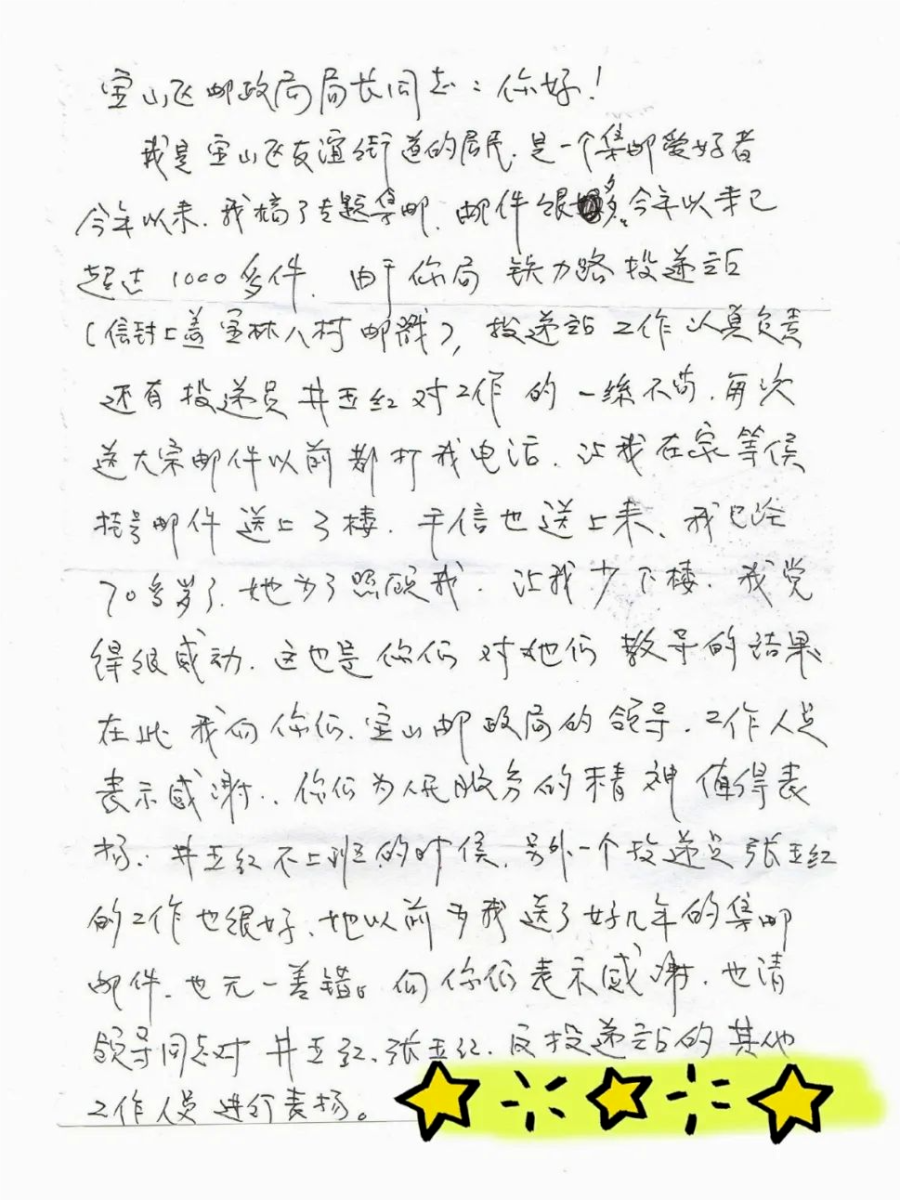 宝山区邮政局局长同志：你好！
我是宝山区友谊街道的居民.是一个集邮爱好者
今年以来.我搞了专题集邮.邮件很多。今年以来已
超过1000多件.由于你局 铁力路投递站
(信封上盖宝林八村邮戳)，投递站工作认真负责
还有投递员井玉红对工作的一丝不苟.每次
送大宗邮件以前都打我电话.让我在家等候
挂号邮件送上了楼.平信也送上来、我已经
70多岁了.她为了照顾我.让我少下楼.我觉
得很感动.这也是你们对她们教导的结果
在此我向你们.宝山邮政局的领导.工作人员
表示感谢..你们为人民服务的精神值得表
扬.井玉红不上班的时候.另外一个投递员张玉红
的工作也很好.她以前为我送了好几年的集邮
邮件.也无一差错。向你们表示感谢.也请
领导同志对井玉红、张玉红.及投递站的其他
工作人员进行表扬。